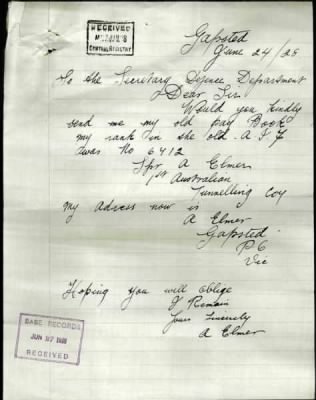 Gapsted
June 24/28
RECEIVED
CENTRAL REGISTRY
To the Secretary Defence Department
Dear Sir
Would you kindly
send me my old pay Book
my rank in the old A.I.F
was No 6412
Spr A Elmer
1st Australian
Tunnelling Coy
my adress now is
A Elmer
Gapsted
P.O
Vic
Hoping you will oblige
I Remain
Yours Sincerely
A Elmer
BASE RECORDS
JUN 27 1928
RECEIVED